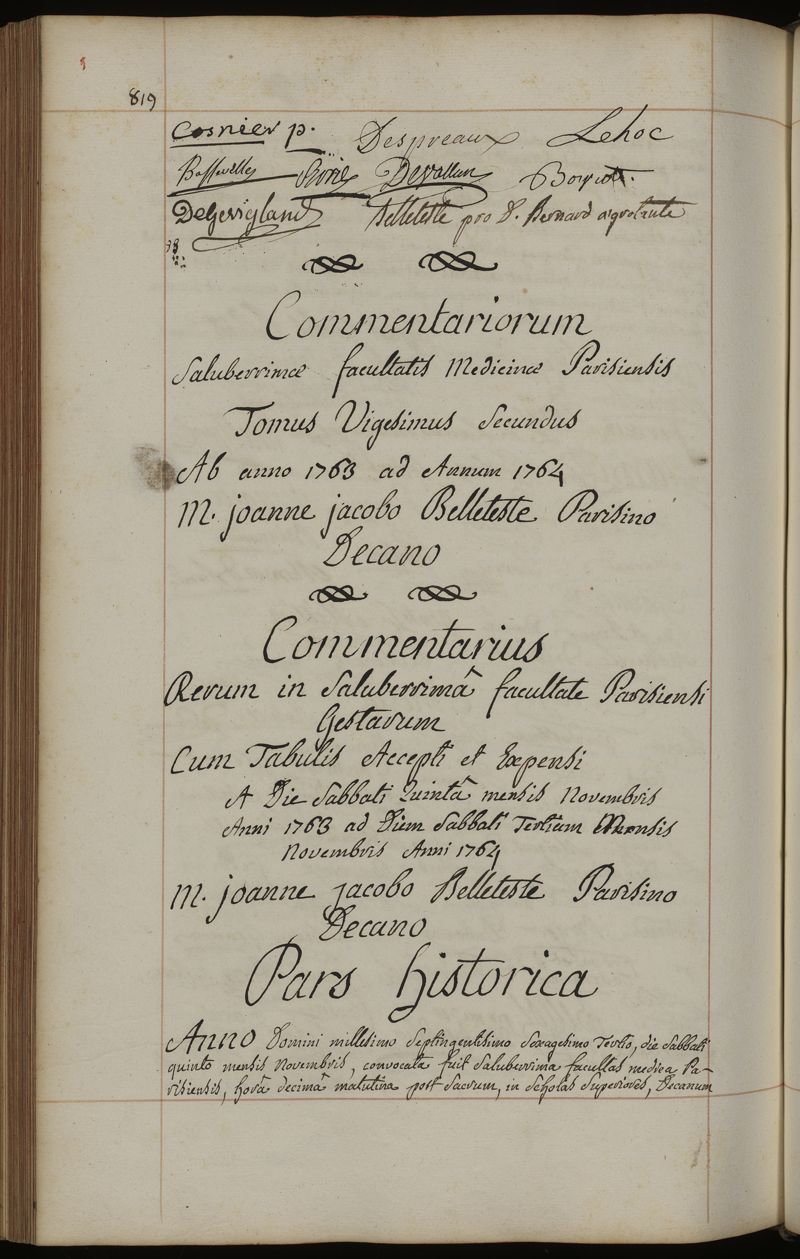 819
Cosnier p. Despreaux Lehoc
Devallun
Belleteste pro D. Bernard ægrotante
Commentariorum
Saluberrimæ facultatis Medicinæ Parisiensis
Tomus Vigesimus Secundus
Ab anno 1763 ad Annum 1764
M. joanne jacobo Belleteste Parisino
Decano
Commentarius
Rerum in Saluberrimâ facultate Parisiensi
Gestarum
Cum Tabulis Accepti et Expensi
A Die Sabbati Quintâ mensis Novembris
Anni 1763 ad Diem Sabbati Tertiam Mensis
Novembris Anni 1764
M. joanne jacobo Belleteste Parisino
Decano
Pars historica
Anno Domini millesimo Septingentesimo Sexagesimo Tertio, die Sabbati
quinto mensis Novembris, convocata fuit Saluberrima facultas medica Pa-
risiensis, horâ decimâ matutina post Sacrum, in Scholas Superiores, Decanum